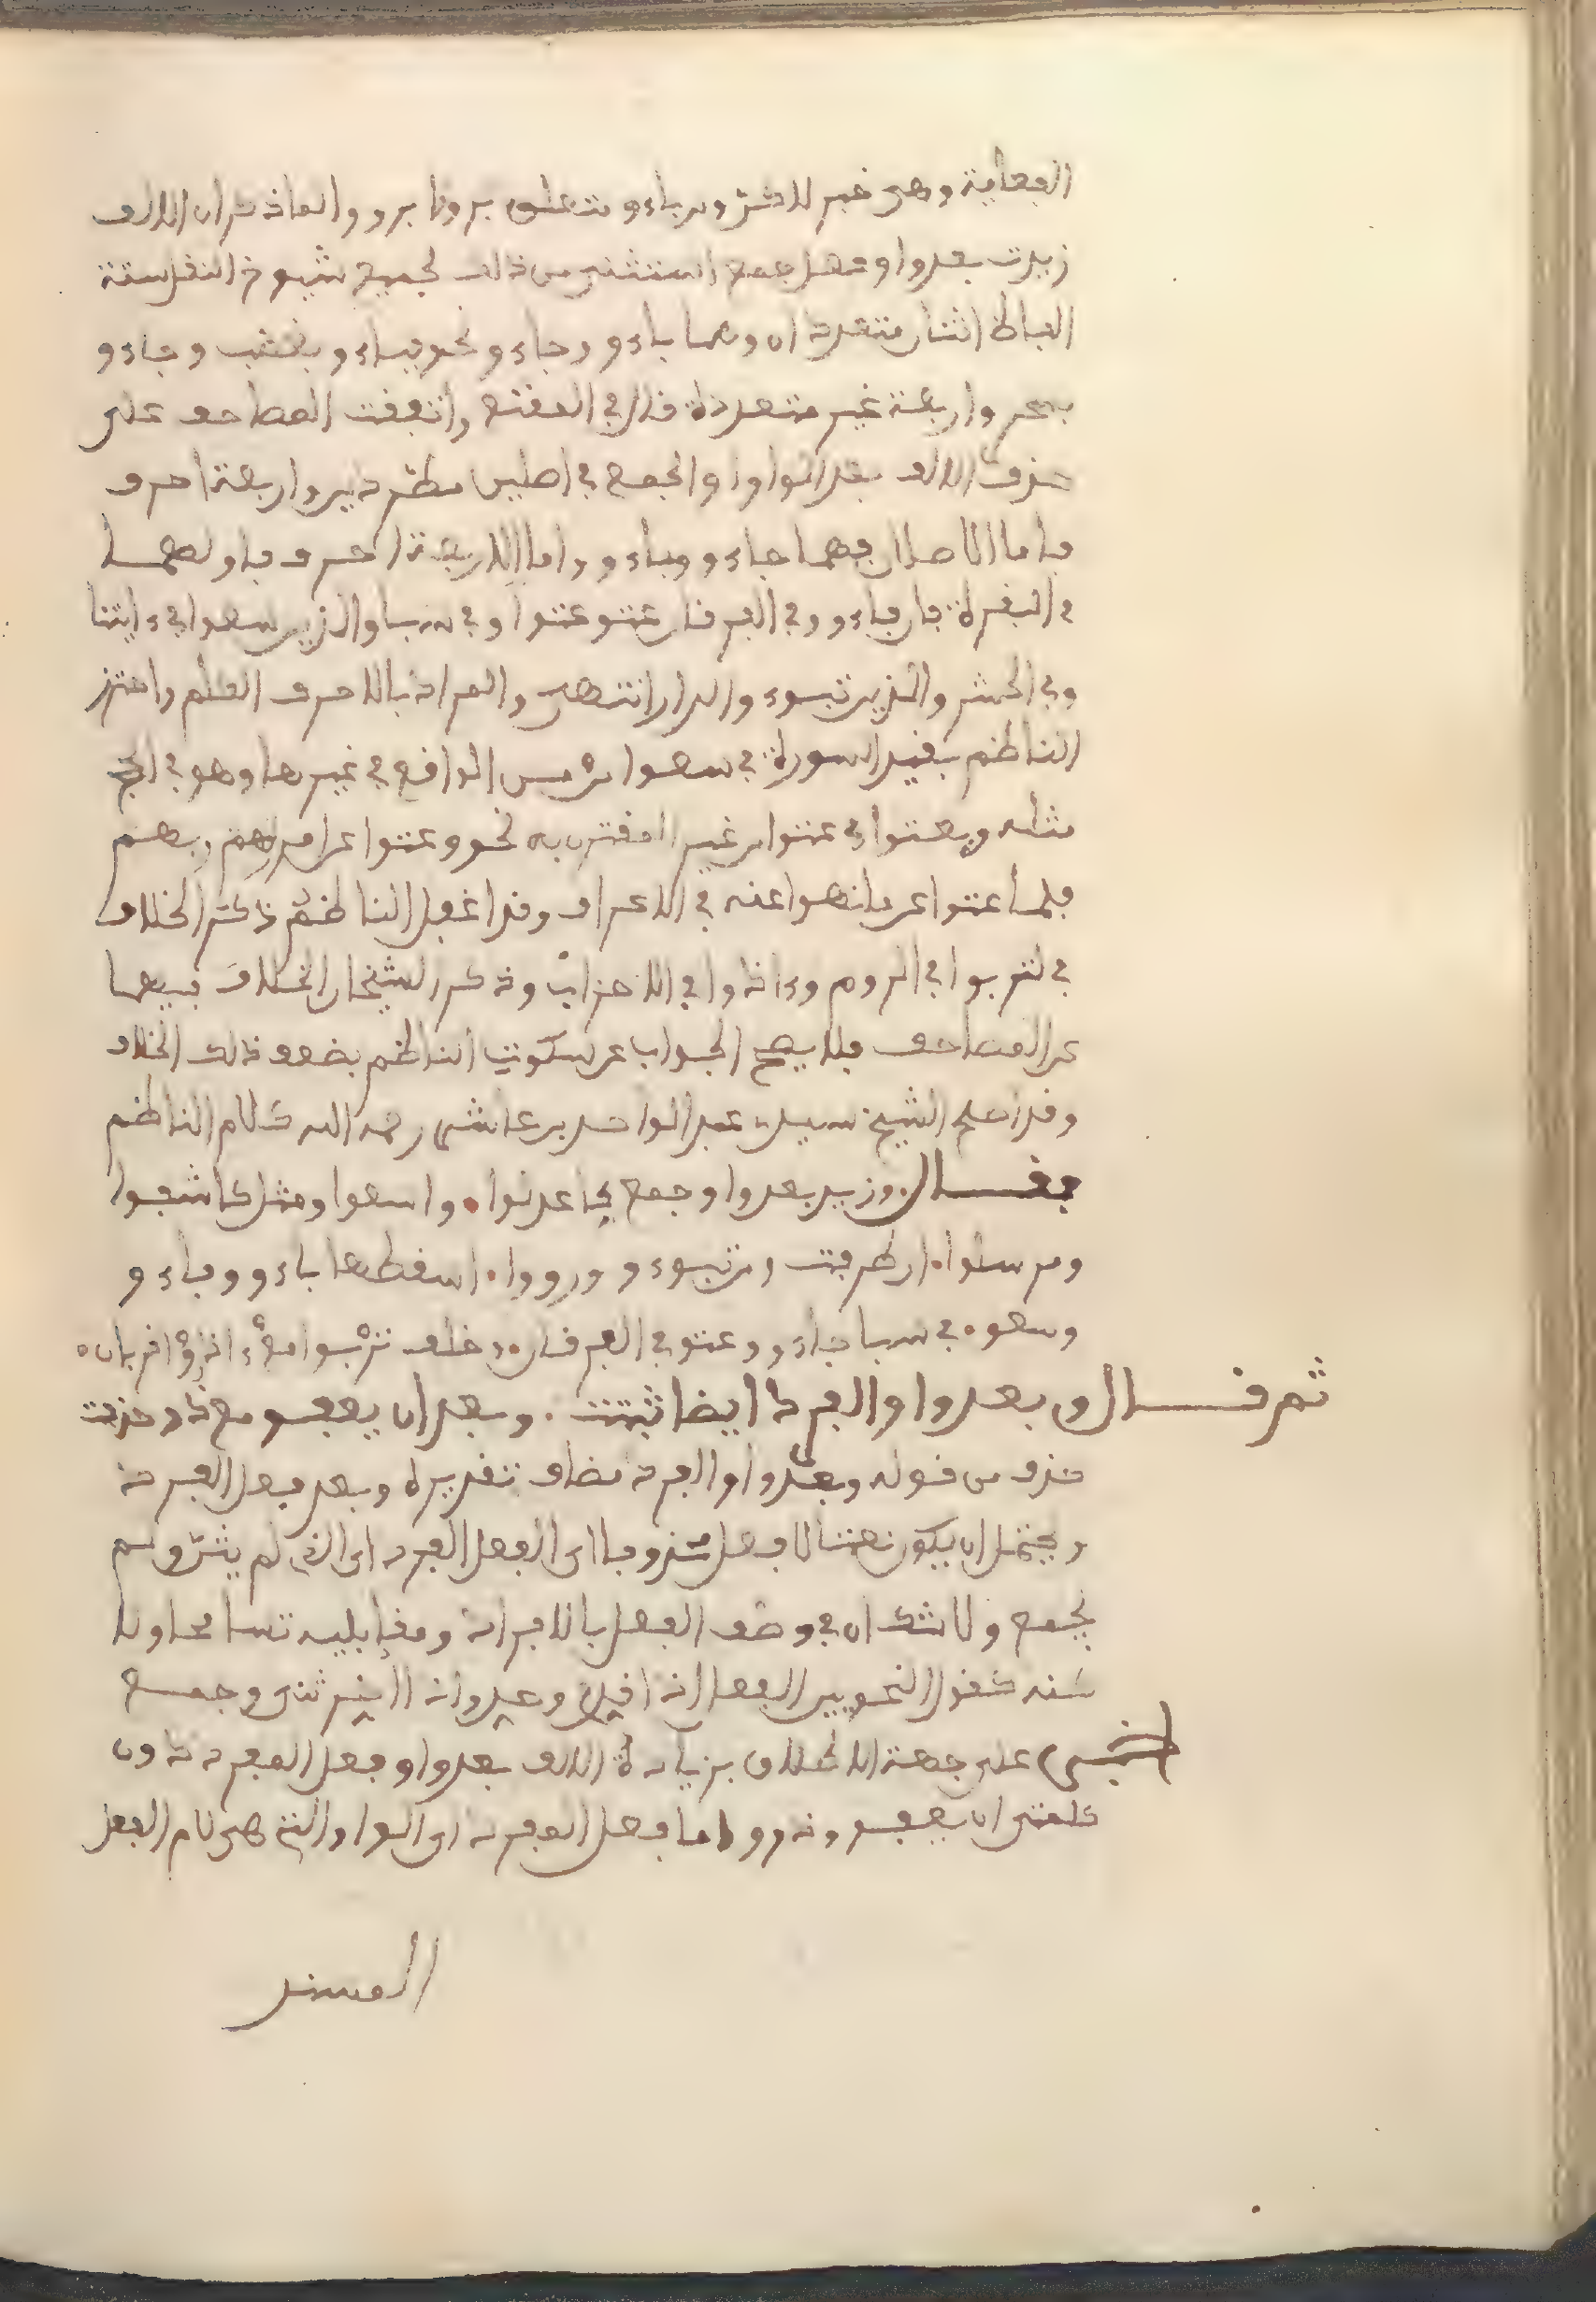 العجاية وهى خبر لاكثر وبر باءو متعلق بزونا برو ولما ذكر ان الالف
زيدت بعد واو فعل جمع استثنى من ذلك لجميع شيوخ النقل ستة
الفاظ اثنان متعددان وهما باءو وجاءو نحو فباءو بغضب وجاءو
بسحر واربعة غير متعددة قال في المقنع واتفقت المصاحف على
حذف الالف بعد الواو والجمع في اصلين مطردين واربعة احرف
فاما الاصلان فهما جاءو وباءو واما الاربعة احرف فاولهما
في البقرة فان فاءو وفي الفرقان عتو عتوا وفي سبا والذين سعو في ءايتنا
وفي الحشر والذين تبوءو الدار انتهى والمراد بالاحرف الكلم واحترز
الناظم بقيد السورة في سعوا من الواقع في غيرها وهو في الحج
مثله وبعتوا في عتوا من غير المقترن به نحو وعتوا عن امر ربهم
فلما عتوا عن ما نهوا عنه في الاعراف وقد اغفل الناظم ذكر الخلاف
في لتربوا في الروم وءاذوا في الاحزاب وذكر الشيخان الخلاف فيهما
عن المصاحف فلا يصح الجواب عن سكوت الناظم بضعف ذلك الخلاف
وقد اصلح الشيخ سيدى عبد الواحد بن عاشر رحمه الله كلام الناظم
فقال وزيد بعد واو جمع كاعدلوا • واسعوا ومثل كاشفوا
ومرسلوا • ان طرفت ومن تبوءو ورووا • اسقطها باءو وفاءو
وسعو • في سبا جاءو وعتو في الفرقان • وخلف تربوا مع ءاذوا قربان •
ثم قال وبعد واو الفرد ايضا ثبتت • وبعد ان يعفو مع ذو حذفت
حذف من قوله وبعد واو الفرد مضاف تقديره وبعد فعل الفرد
ويحتمل ان يكون نعتا لا فعل محذوفا اى الفعل الفرد اى الذى لم يثن ولم
يجمع ولا شك ان في وصف الفعل بالافراد ومقابليه تسامحا ولا
سنه كقول النحويين الفعل اذا قيل وعدوا اذا ثنى وجمع
اخبر على جهة الاطلاق بزيادة الالف بعد واو فعل المفرد دون
كلمتى ان يعفو وذو واما فعل المفرد اى الواو التى هى لام الفعل
المسند